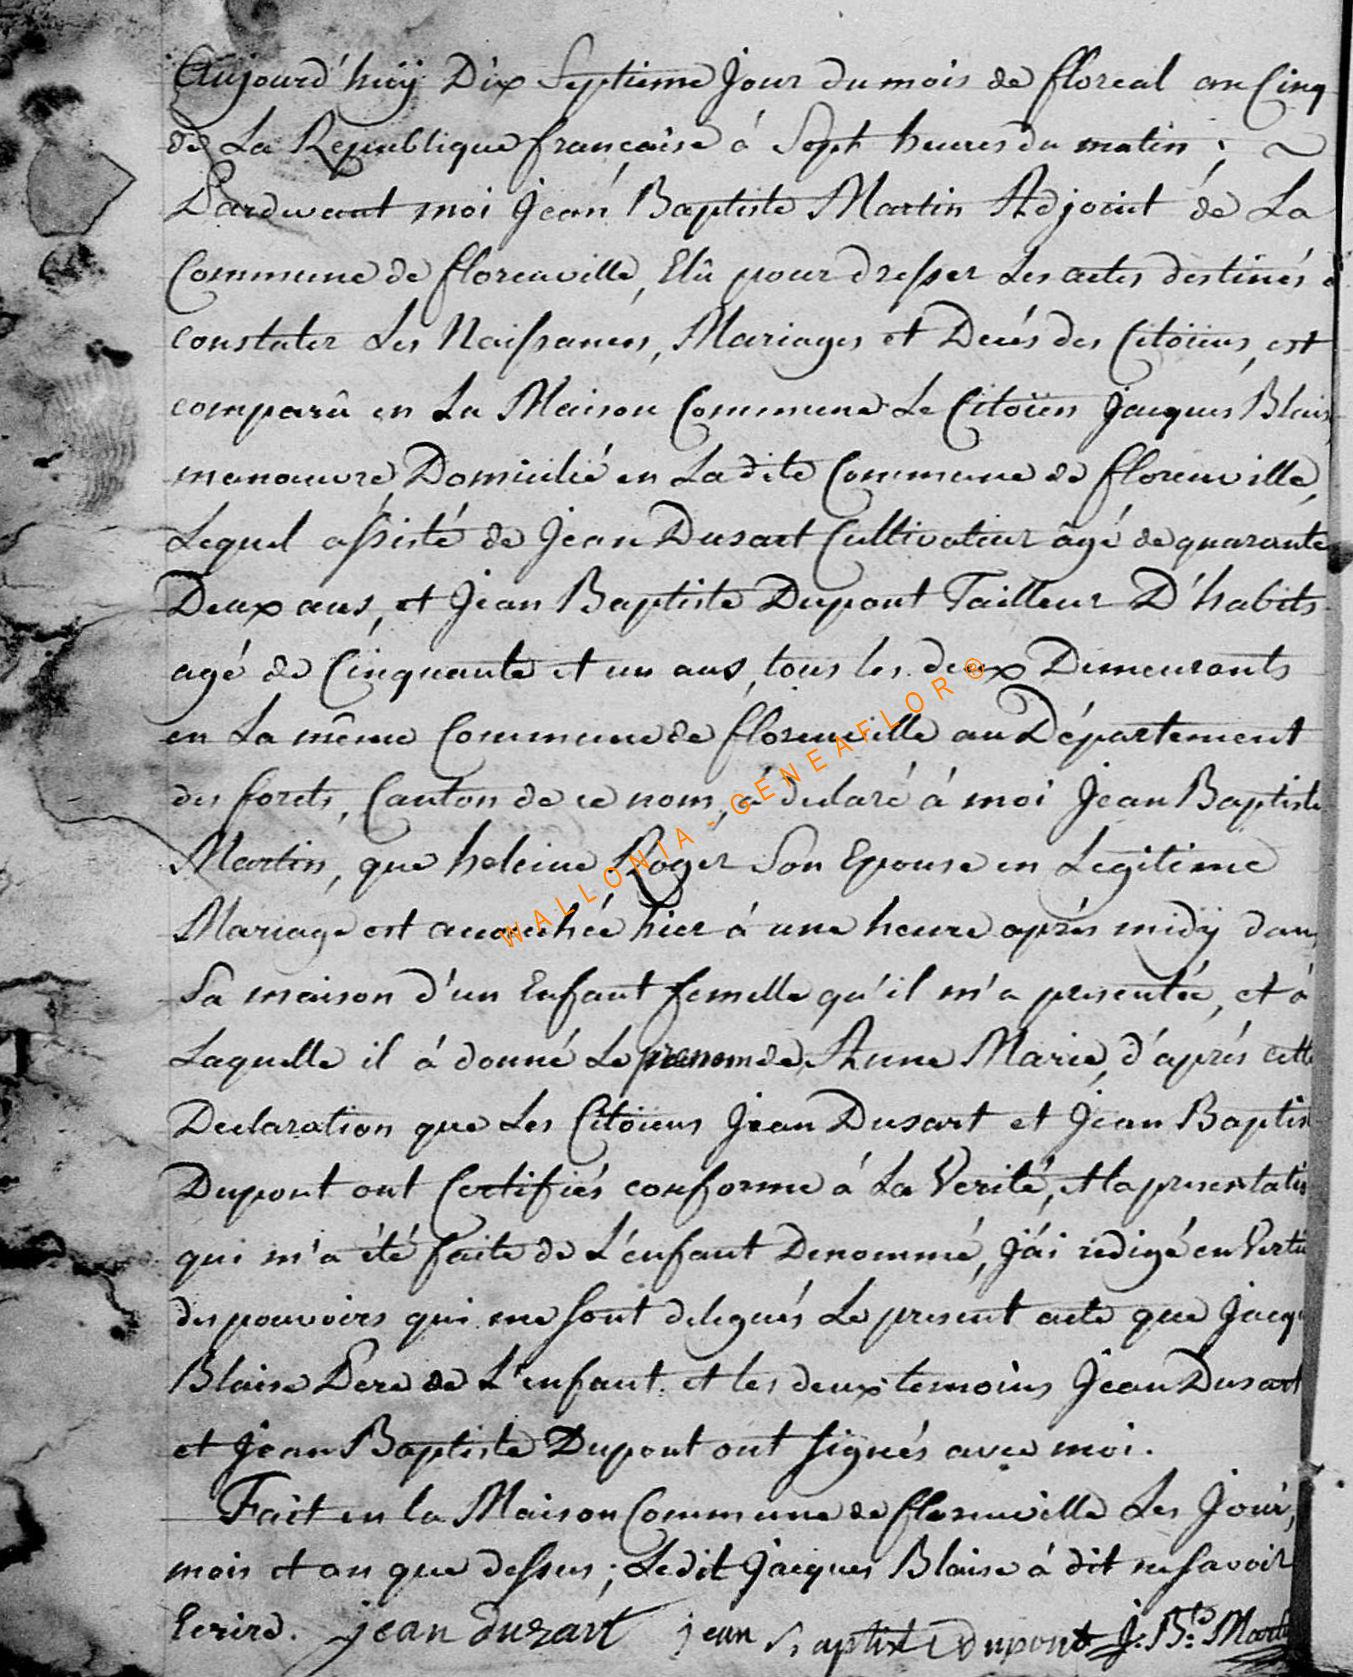 Aujourd'huÿ Dix Septieme Jour du mois de floreal an Cinq
de La Republique francaise à Sept heures du matin ;
Pardevant moi Jean Baptiste Martin Adjoint de La
Commune de florenville, Elû pour dresser Les actes destinés à
constater Les Naissances, Mariages et Decés des Citoiens, est
comparû en La Maison Commune Le Citoïen Jacques Blais
manoeuvre Domicilié en La dite Commune de florenville,
Lequel assisté de Jean Dusart Cultivateur âgé de quarante
Deux ans, et Jean Baptiste Dupont Tailleur D'habits
agé de Cinquante et un ans, tous les deux Demeurants
en La même Commune de florenville au Département
des forets, Canton de ce nom, à declaré à moi Jean Baptiste
Martin, que heleine Roger Son Epouse en Legitime
Mariage est accouchée hier à une heure aprés midÿ dans
Sa maison d'un Enfant femelle qu'il m'a presentée, et à
Laquelle il à donné Le prenom de Anne Marie, d'aprés cette
Declaration que Les Citoiens Jean Dusart et Jean Baptis
Dupont ont Certifiés conforme à La Verité, et la presentatio
qui m'a été faite de L'enfant Denommé, J'ai redigé en Vertu
des pouvoirs qui me sont delegués Le present acte que Jacqu
Blaise Pere de L'enfant et les deux temoins Jean Dusart
et Jean Baptiste Dupont ont signés avec moi.
Fait en la Maison Commune de florenville Les Jour,
mois et an que dessus ; Ledit Jacques Blaise à dit ne savoir
Ecrire. jean duzart jean Baptiste dupont J. B.te Martin
WALLONIA - GENEAFLOR ®